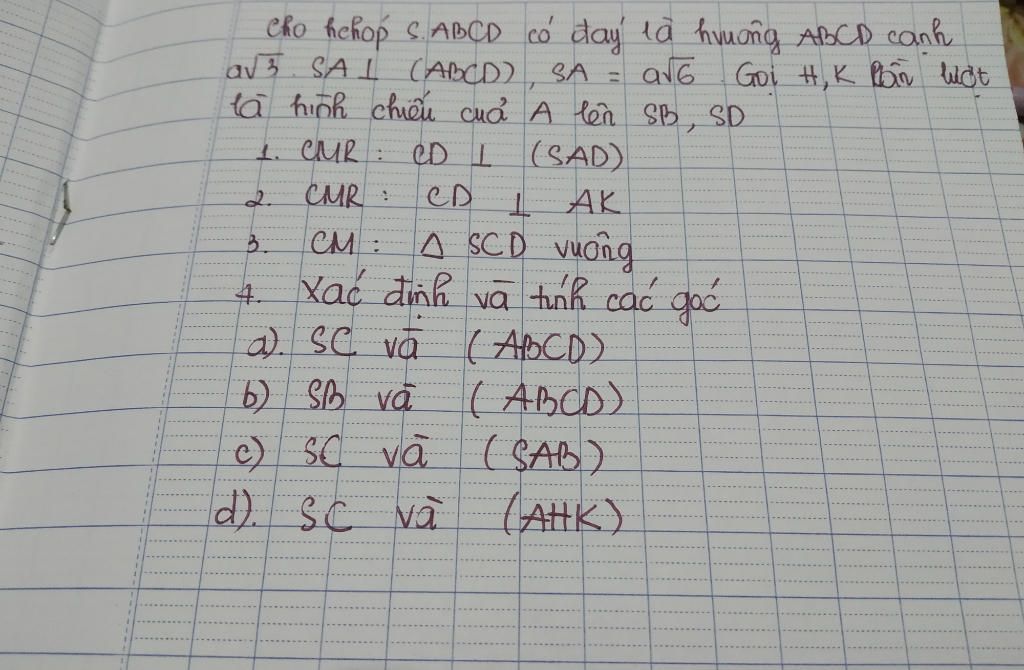 Cho hchóp S.ABCD có đáy là hvuông ABCD cạnh
a√3. SA ⊥ (ABCD), SA = a√6. Gọi H, K lần lượt
là hình chiếu của A lên SB, SD
1. CMR : CD ⊥ (SAD)
2. CMR : CD ⊥ AK
3. CM : Δ SCD vuông
4. Xác định và tính các góc
a). SC và (ABCD)
b) SB và (ABCD)
c) SC và (SAB)
d). SC và (AHK)